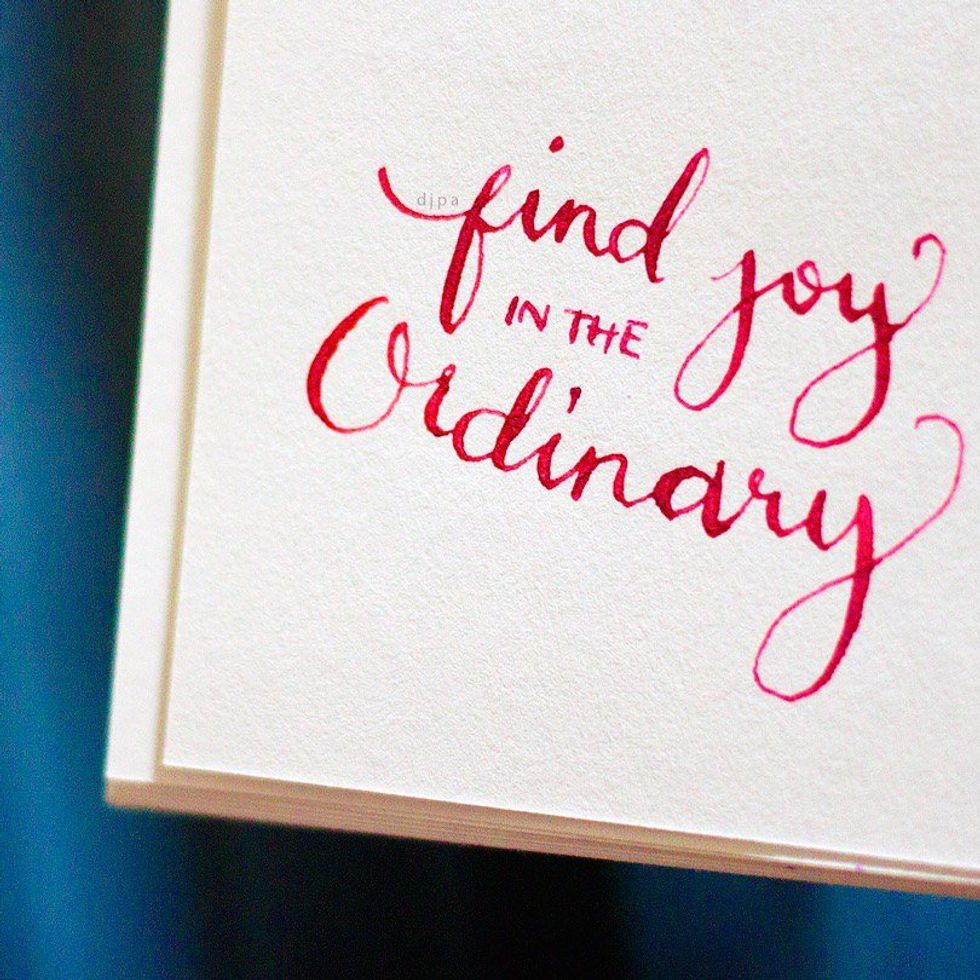 find joy
IN THE
Ordinary
djpa